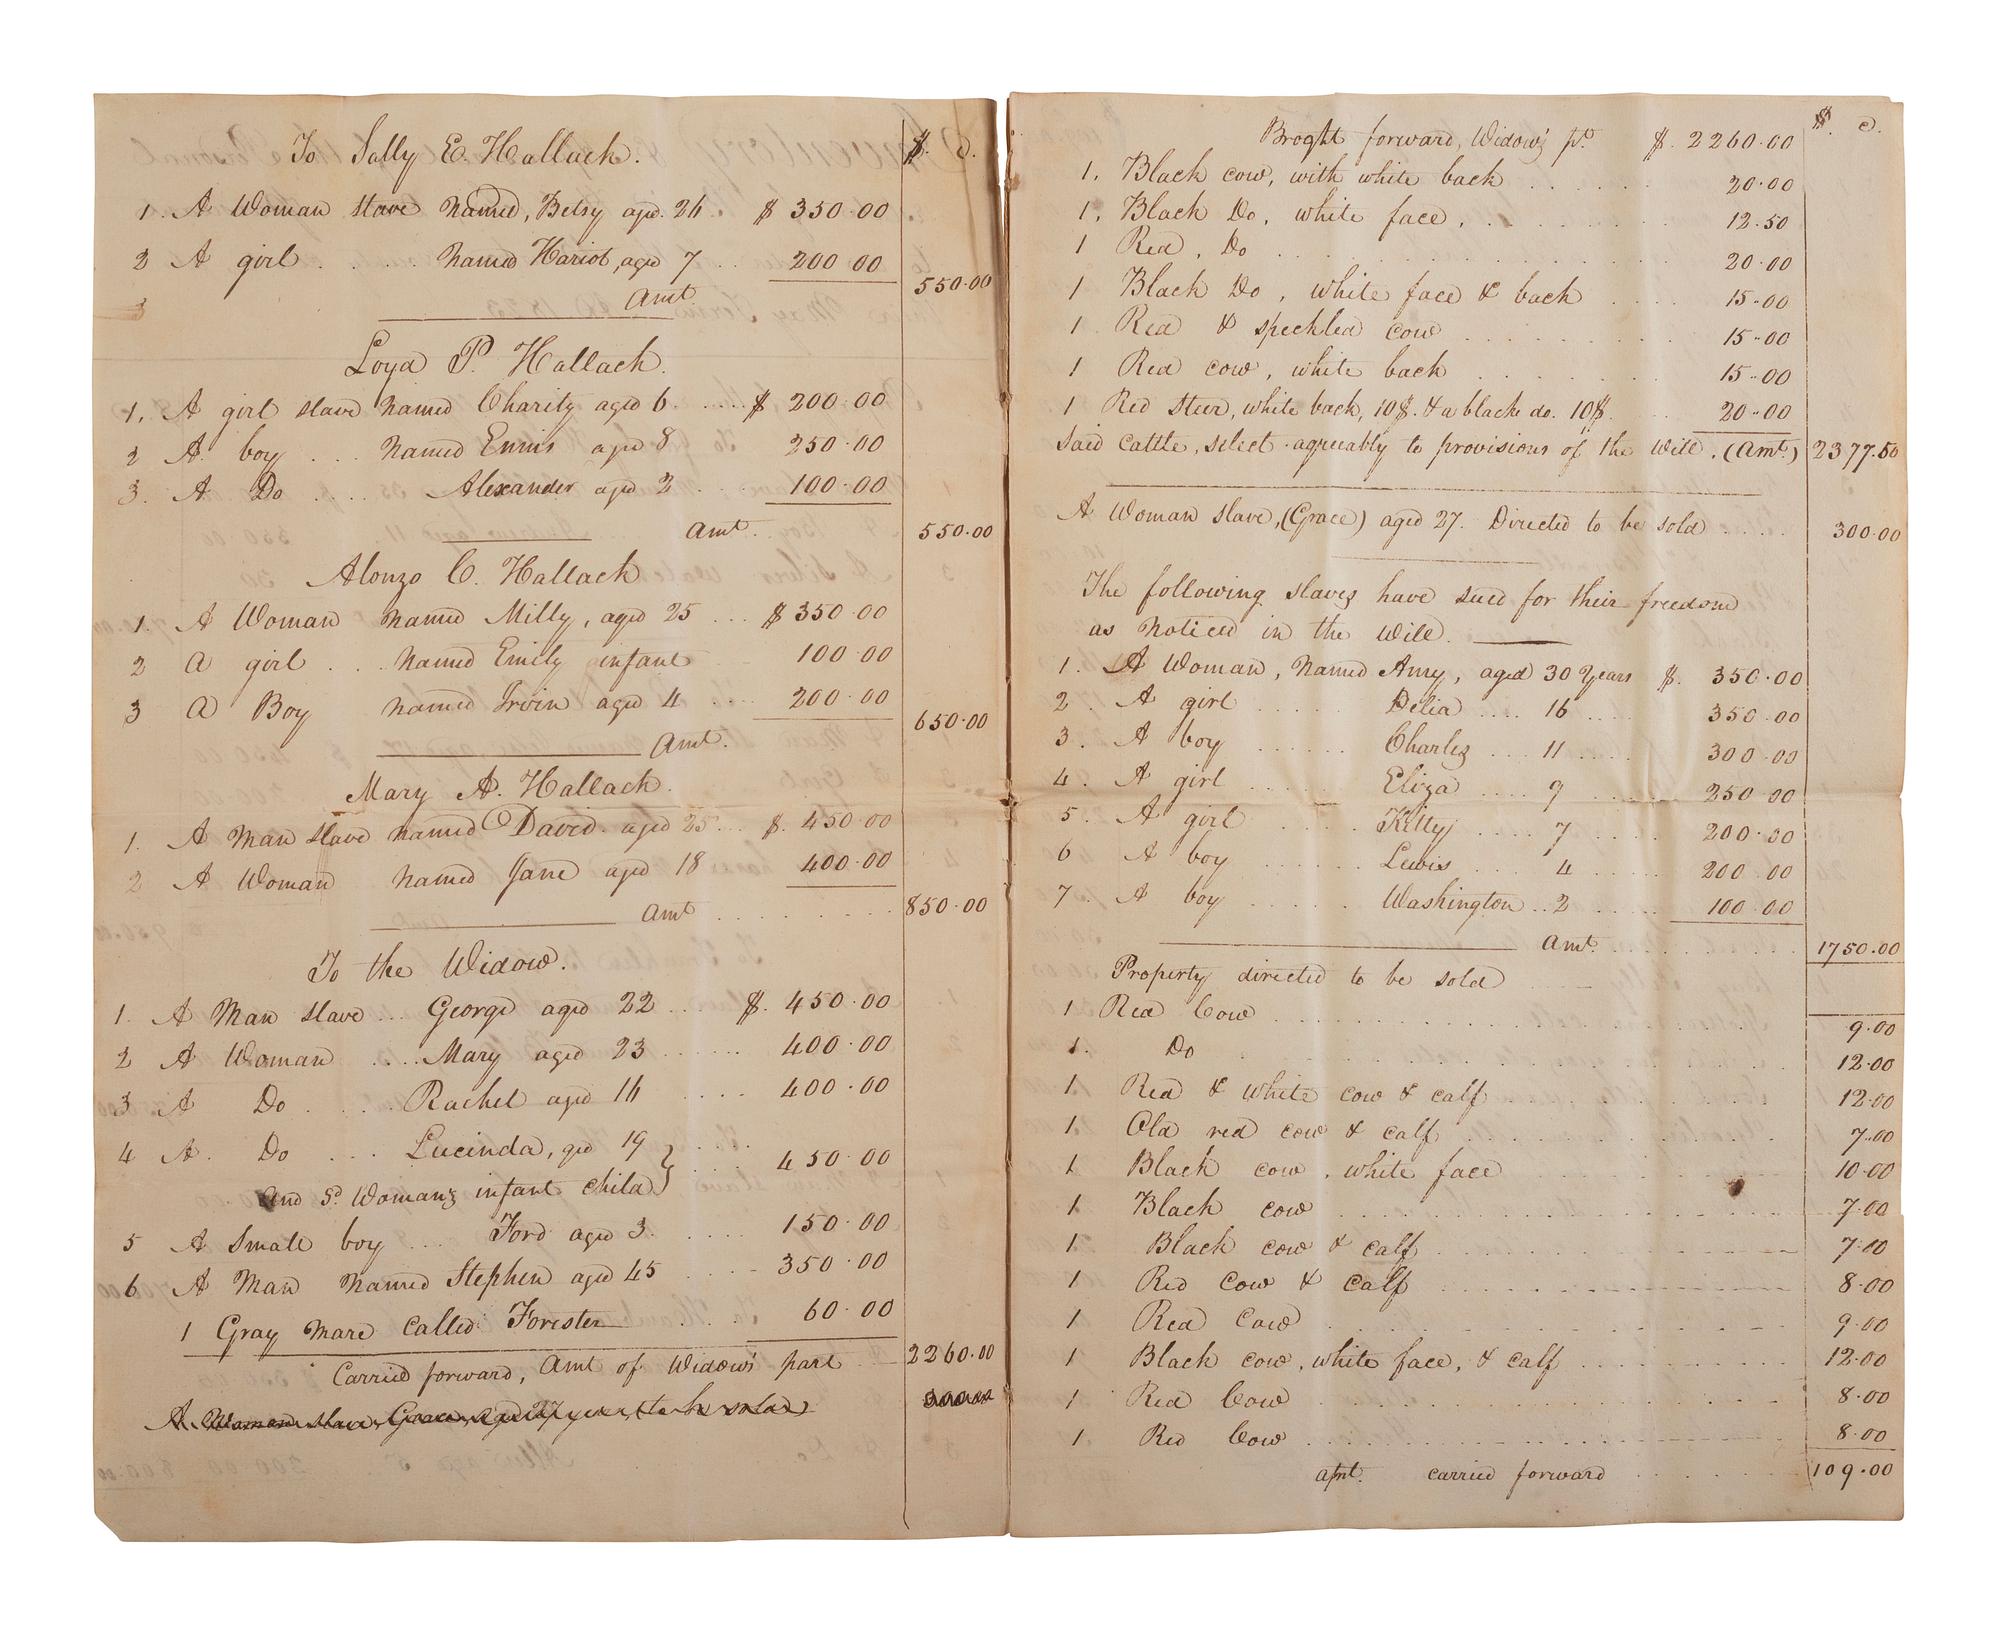 To Sally E. Hallack.
$. c.
1. A Woman slave Named, Betsy aged. 26. $ 350.00
2 A girl . . . . . Named Hariot, aged 7 . . 200 00
3 Amt. 550.00
Loyd P. Hallack.
1. A girl slave Named Charity aged 6 . . . . $ 200.00
2 A boy . . . Named Ennis aged 8 250.00
3. A Do . . . . Alexander aged 2 . . . 100.00
Amt. 550.00
Alonzo C. Hallack
1. A Woman Named Milly, aged 25 . . . $ 350.00
2 A girl . . . Named Emily infant 100.00
3 A Boy Named Irvin aged 4 . . . 200.00
Amt. 650.00
Mary A. Hallack.
1. A Man slave named David. aged 25 . . . $. 450.00
2 A Woman Named Jane aged 18 400.00
Amt . . . . . . . . 850.00
To the Widow.
1. A Man slave . . . George aged 22 . . . . $. 450.00
2 A Woman . . . . Mary aged 23 . . . . . . 400.00
3 A Do . . . . Rachel aged 16 . . . . 400.00
4 A. Do . . . Lucinda, aged 19 } . . .
and Sd. Woman's infant child } . . . . 450.00
5 A Small boy . . . Ford aged 3. . . . . 150.00
6 A Man Named Stephen aged 45 . . . . 350.00
1 Gray Mare Called Forester . . . . 60.00
Carried forward, Amt of Widow's part . . 2260.00
A. Woman slave, Grace, aged 27 years, (to be sold)
$. c.
Broght forward, Widow's pt. $. 2260.00
1. Black cow, with white back . . . . . . 20.00
1. Black Do, white face, . . . . . . . 12.50
1 Red, Do . . . . . . . . . . . 20.00
1 Black Do, white face & back . . . . 15.00
1 Red & speckled cow . . . . . . . . 15.00
1 Red cow, white back . . . . . . . 15.00
1 Red Steer, white back, 10$. & a black do. 10$. . . 20.00
Said Cattle, select agreeably to provisions of the Will. (Amt.) 2377.50
A Woman slave, (Grace) aged 27. Directed to be sold . . . . 300.00
The following slaves have sued for their freedom
as Noticed in the Will.
1. A Woman, Named Amy, aged 30 Years $. 350.00
2. A girl . . . . . Delia . . . . 16 . . . . 350.00
3. A boy . . . . . . Charles . . . 11 . . . . 300.00
4. A girl . . . . . Eliza . . . . 9 250.00
5. A girl . . . . . Kitty . . . . 7 . . . . 200.00
6 A boy . . . . . . Lewis . . . 4 . . . . . 200.00
7. A boy . . . . . Washington . . 2 . . . . 100.00
Amt. . . . . . . . . 1750.00
Property directed to be sold
1 Red Cow . . . . . . . . . . . . 9.00
1. Do . . . . . . . . . . . . 12.00
1 Red & White cow & calf . . . . . . . 12.00
1 Old red cow & calf . . . . . . . . 7.00
1 Black cow, white face 10.00
1 Black cow . . . . . . . . . . . 7.00
1 Black cow & calf . . . . . . . . . 7.00
1 Red Cow & Calf . . . . . . . . . 8.00
1 Red Cow . . . . . . . . . . . 9.00
1 Black cow, white face, & calf . . . . . . . . 12.00
1 Red Cow . . . . . . . . . . . 8.00
1 Red Cow . . . . . . . . . . . 8.00
Amt. carried forward . . . . . . 109.00